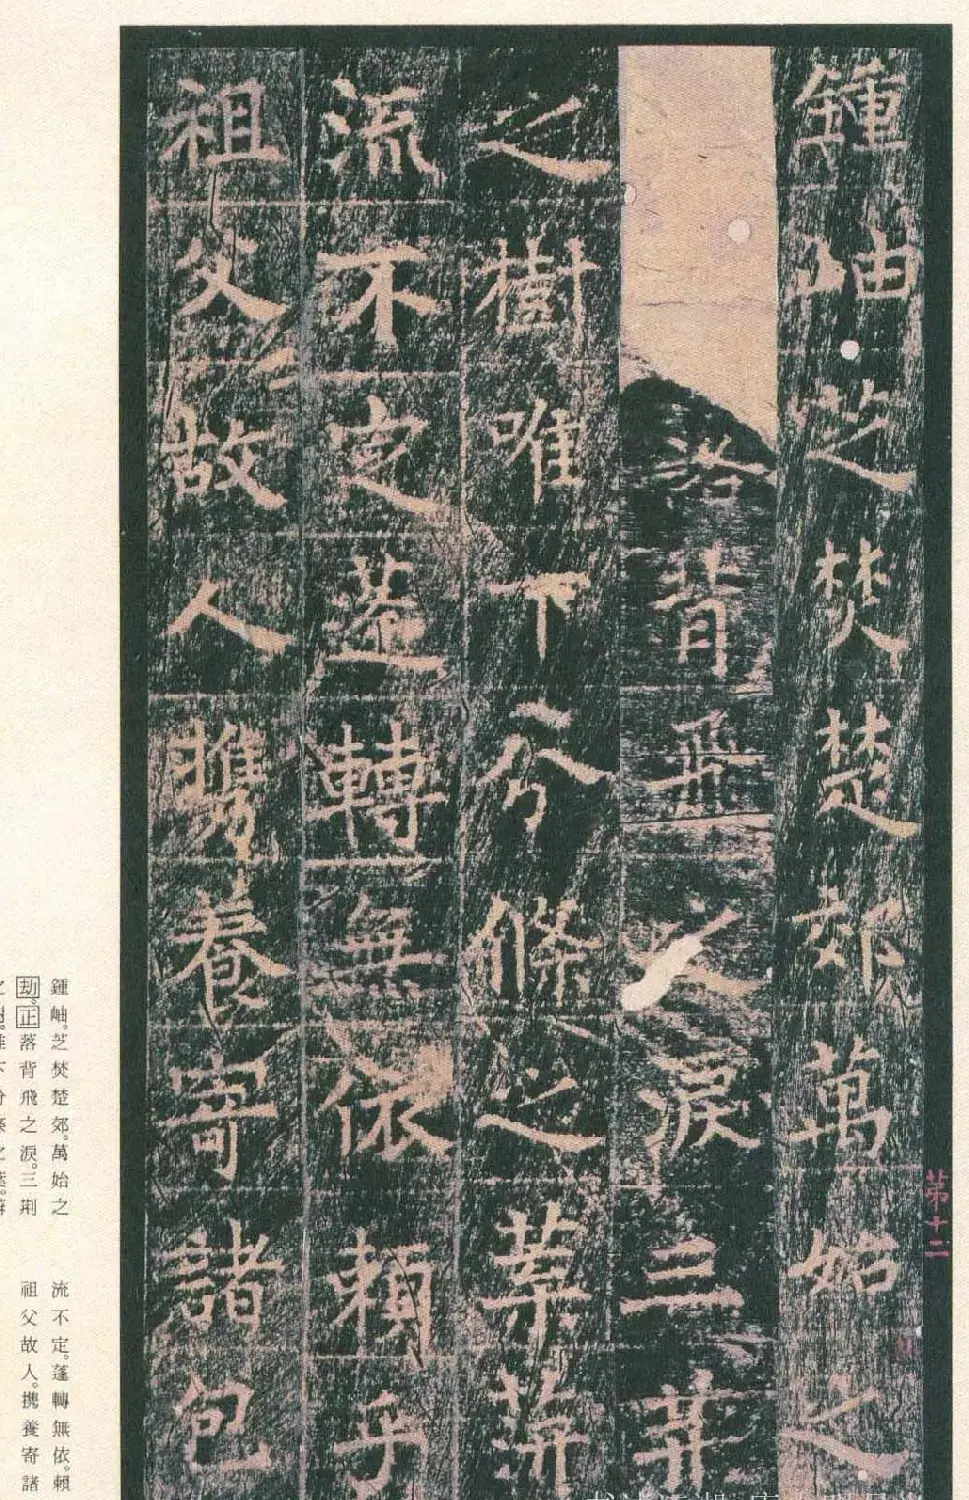 鍾岫芝焚楚郊萬始之
落背飛之淚三荊
之樹唯下分條之葉荓
流不定蓬轉無依賴乎
祖父故人攜養寄諸包
第十二
鍾岫。芝焚楚郊。萬始之
劫。正落背飛之淚。三荊
流不定。蓬轉無依。賴
祖父故人。携養寄諸